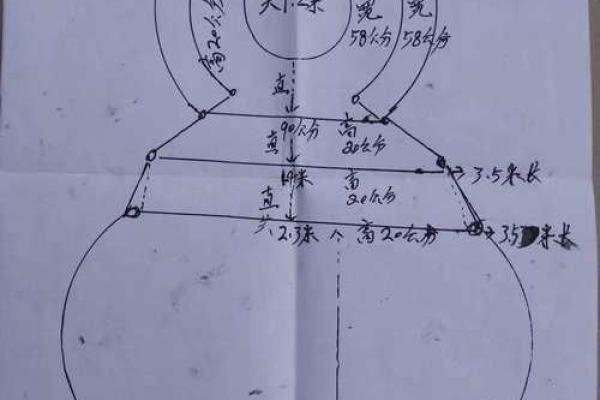 大1.2米
高20公分
宽
58公分
宽
58公分
直
90公分
高
20公分
直
高
20公分
3.5米长
直
共2.3米
高20公分
3.5米长